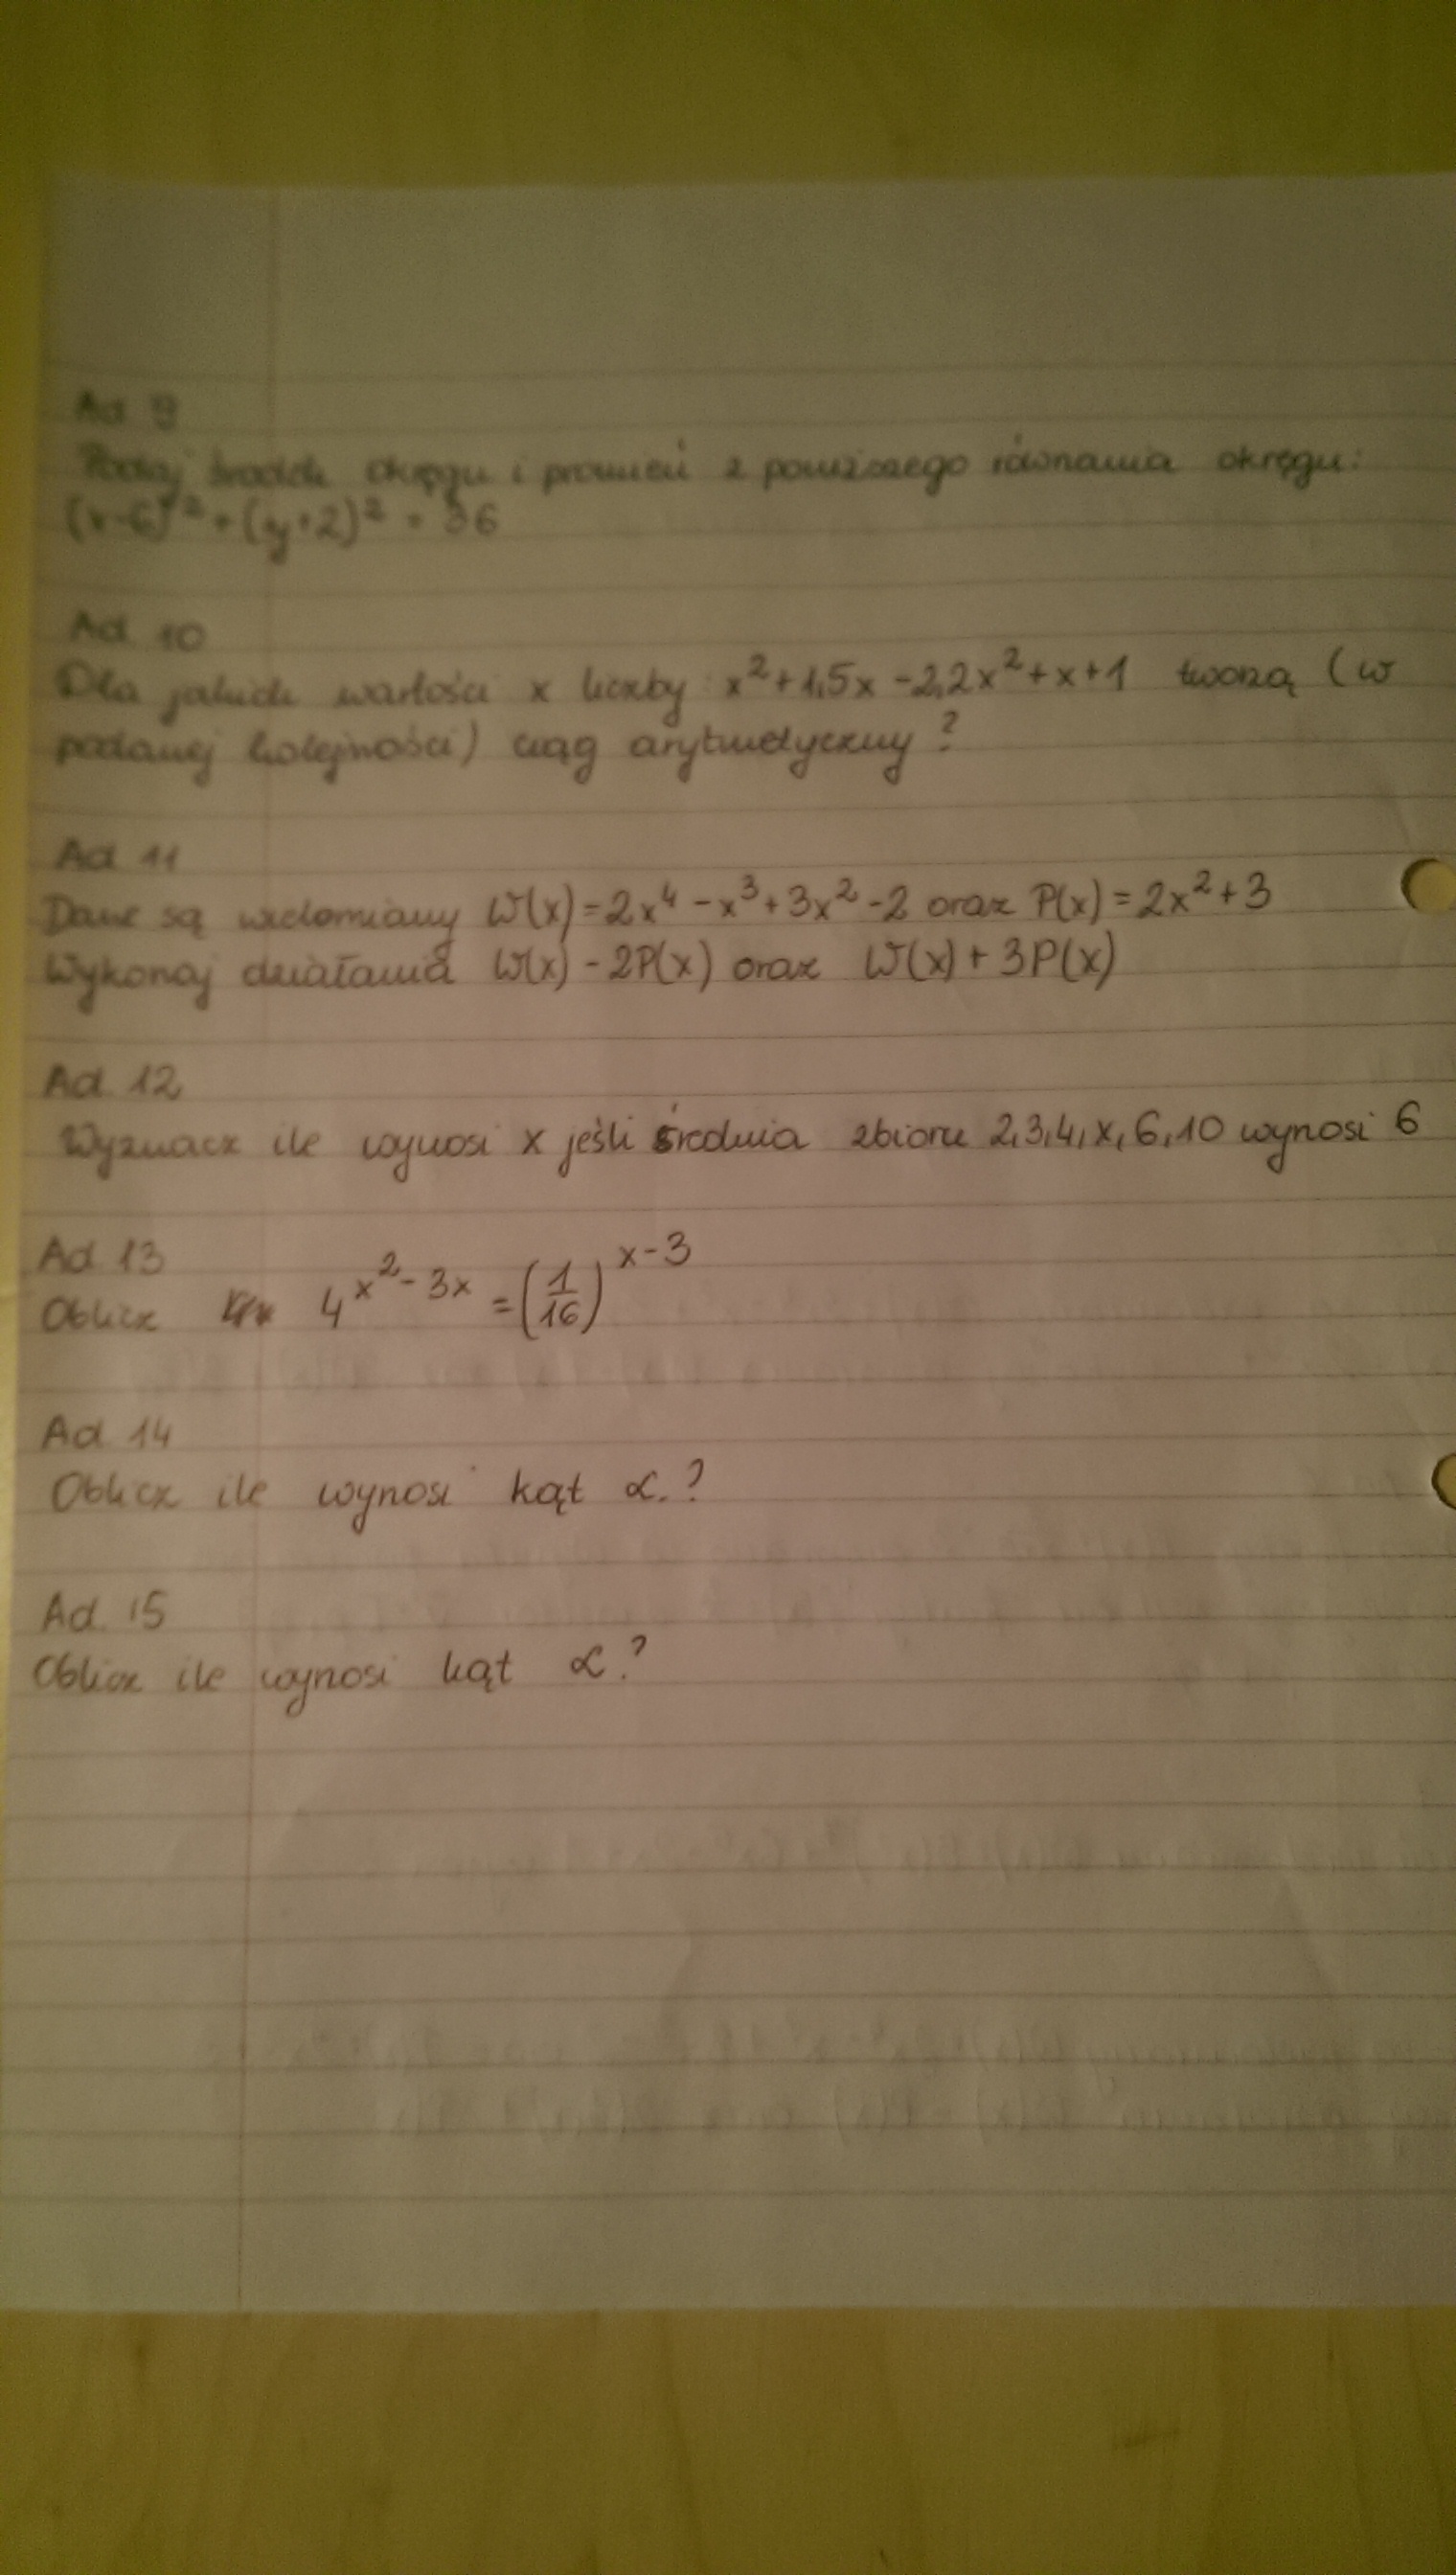 Ad 9
Podaj środek okręgu i promień z powiższego równania okręgu:
(x-6)² + (y+2)² = 36
Ad. 10
Dla jakich wartości x liczby: x²+1,5x-2,2x²+x+1 tworzą (w
podanej kolejności) ciąg arytmetyczny?
Ad 11
Dane są wielomiany W(x)=2x⁴-x³+3x²-2 oraz P(x)=2x²+3
Wykonaj działania W(x)-2P(x) oraz W(x)+3P(x)
Ad. 12
Wyznacz ile wynosi x jeśli średnia zbioru 2,3,4,x,6,10 wynosi 6
Ad. 13
Oblicz 4^(x²-3x) = (1/16)^(x-3)
Ad. 14
Oblicz ile wynosi kąt α.?
Ad. 15
Oblicz ile wynosi kąt α.?